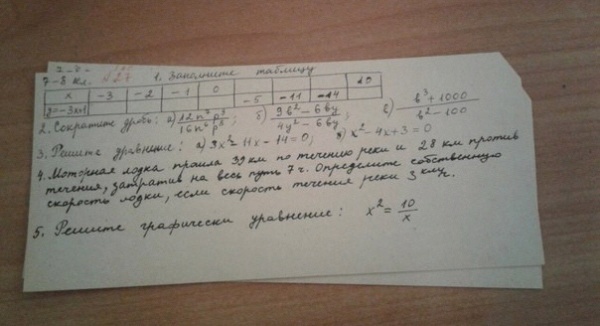 7-8 кл. №27 1. Заполните таблицу
x -3 -2 -1 0 10
y=-3x+1 -5 -11 -14
2. Сократите дробь: а) 12n³p³/16n⁶p⁸; б) 9b²-6by/4y²-6by; в) b³+1000/b²-100
3. Решите уравнение: а) 3x²-11x-14=0; x²-4x+3=0
4. Моторная лодка прошла 39 км по течению реки и 28 км против
течения, затратив на весь путь 7 ч. Определите собственную
скорость лодки, если скорость течения реки 3 км/ч.
5. Решите графически уравнение: x²=10/x